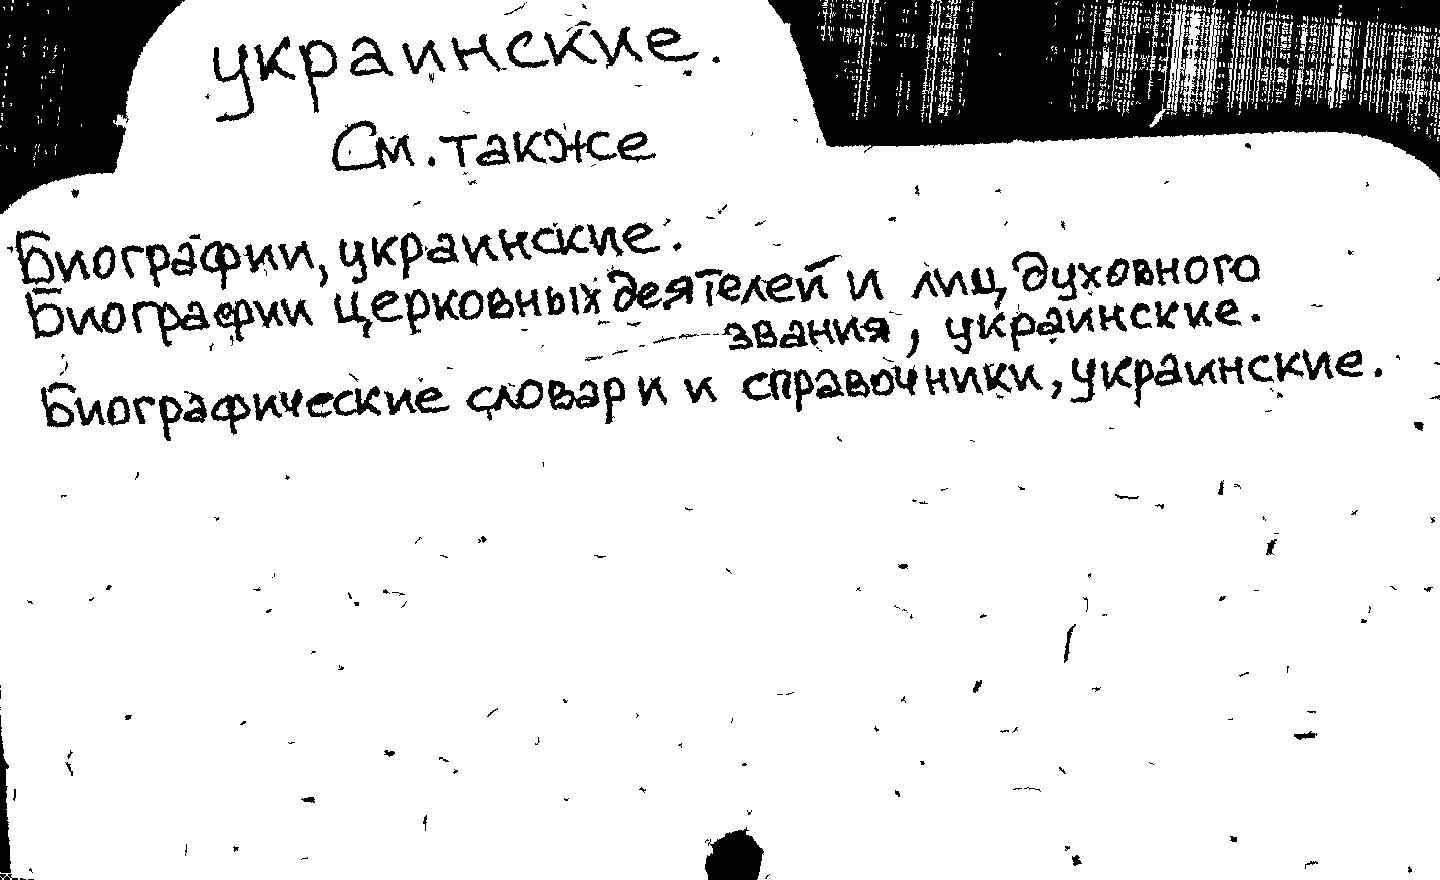 украинские.
См. также
Биографии, украинские.
Биографии церковных деятелей и лиц духовного
звания, украинские.
Биографические словари и справочники, украинские.